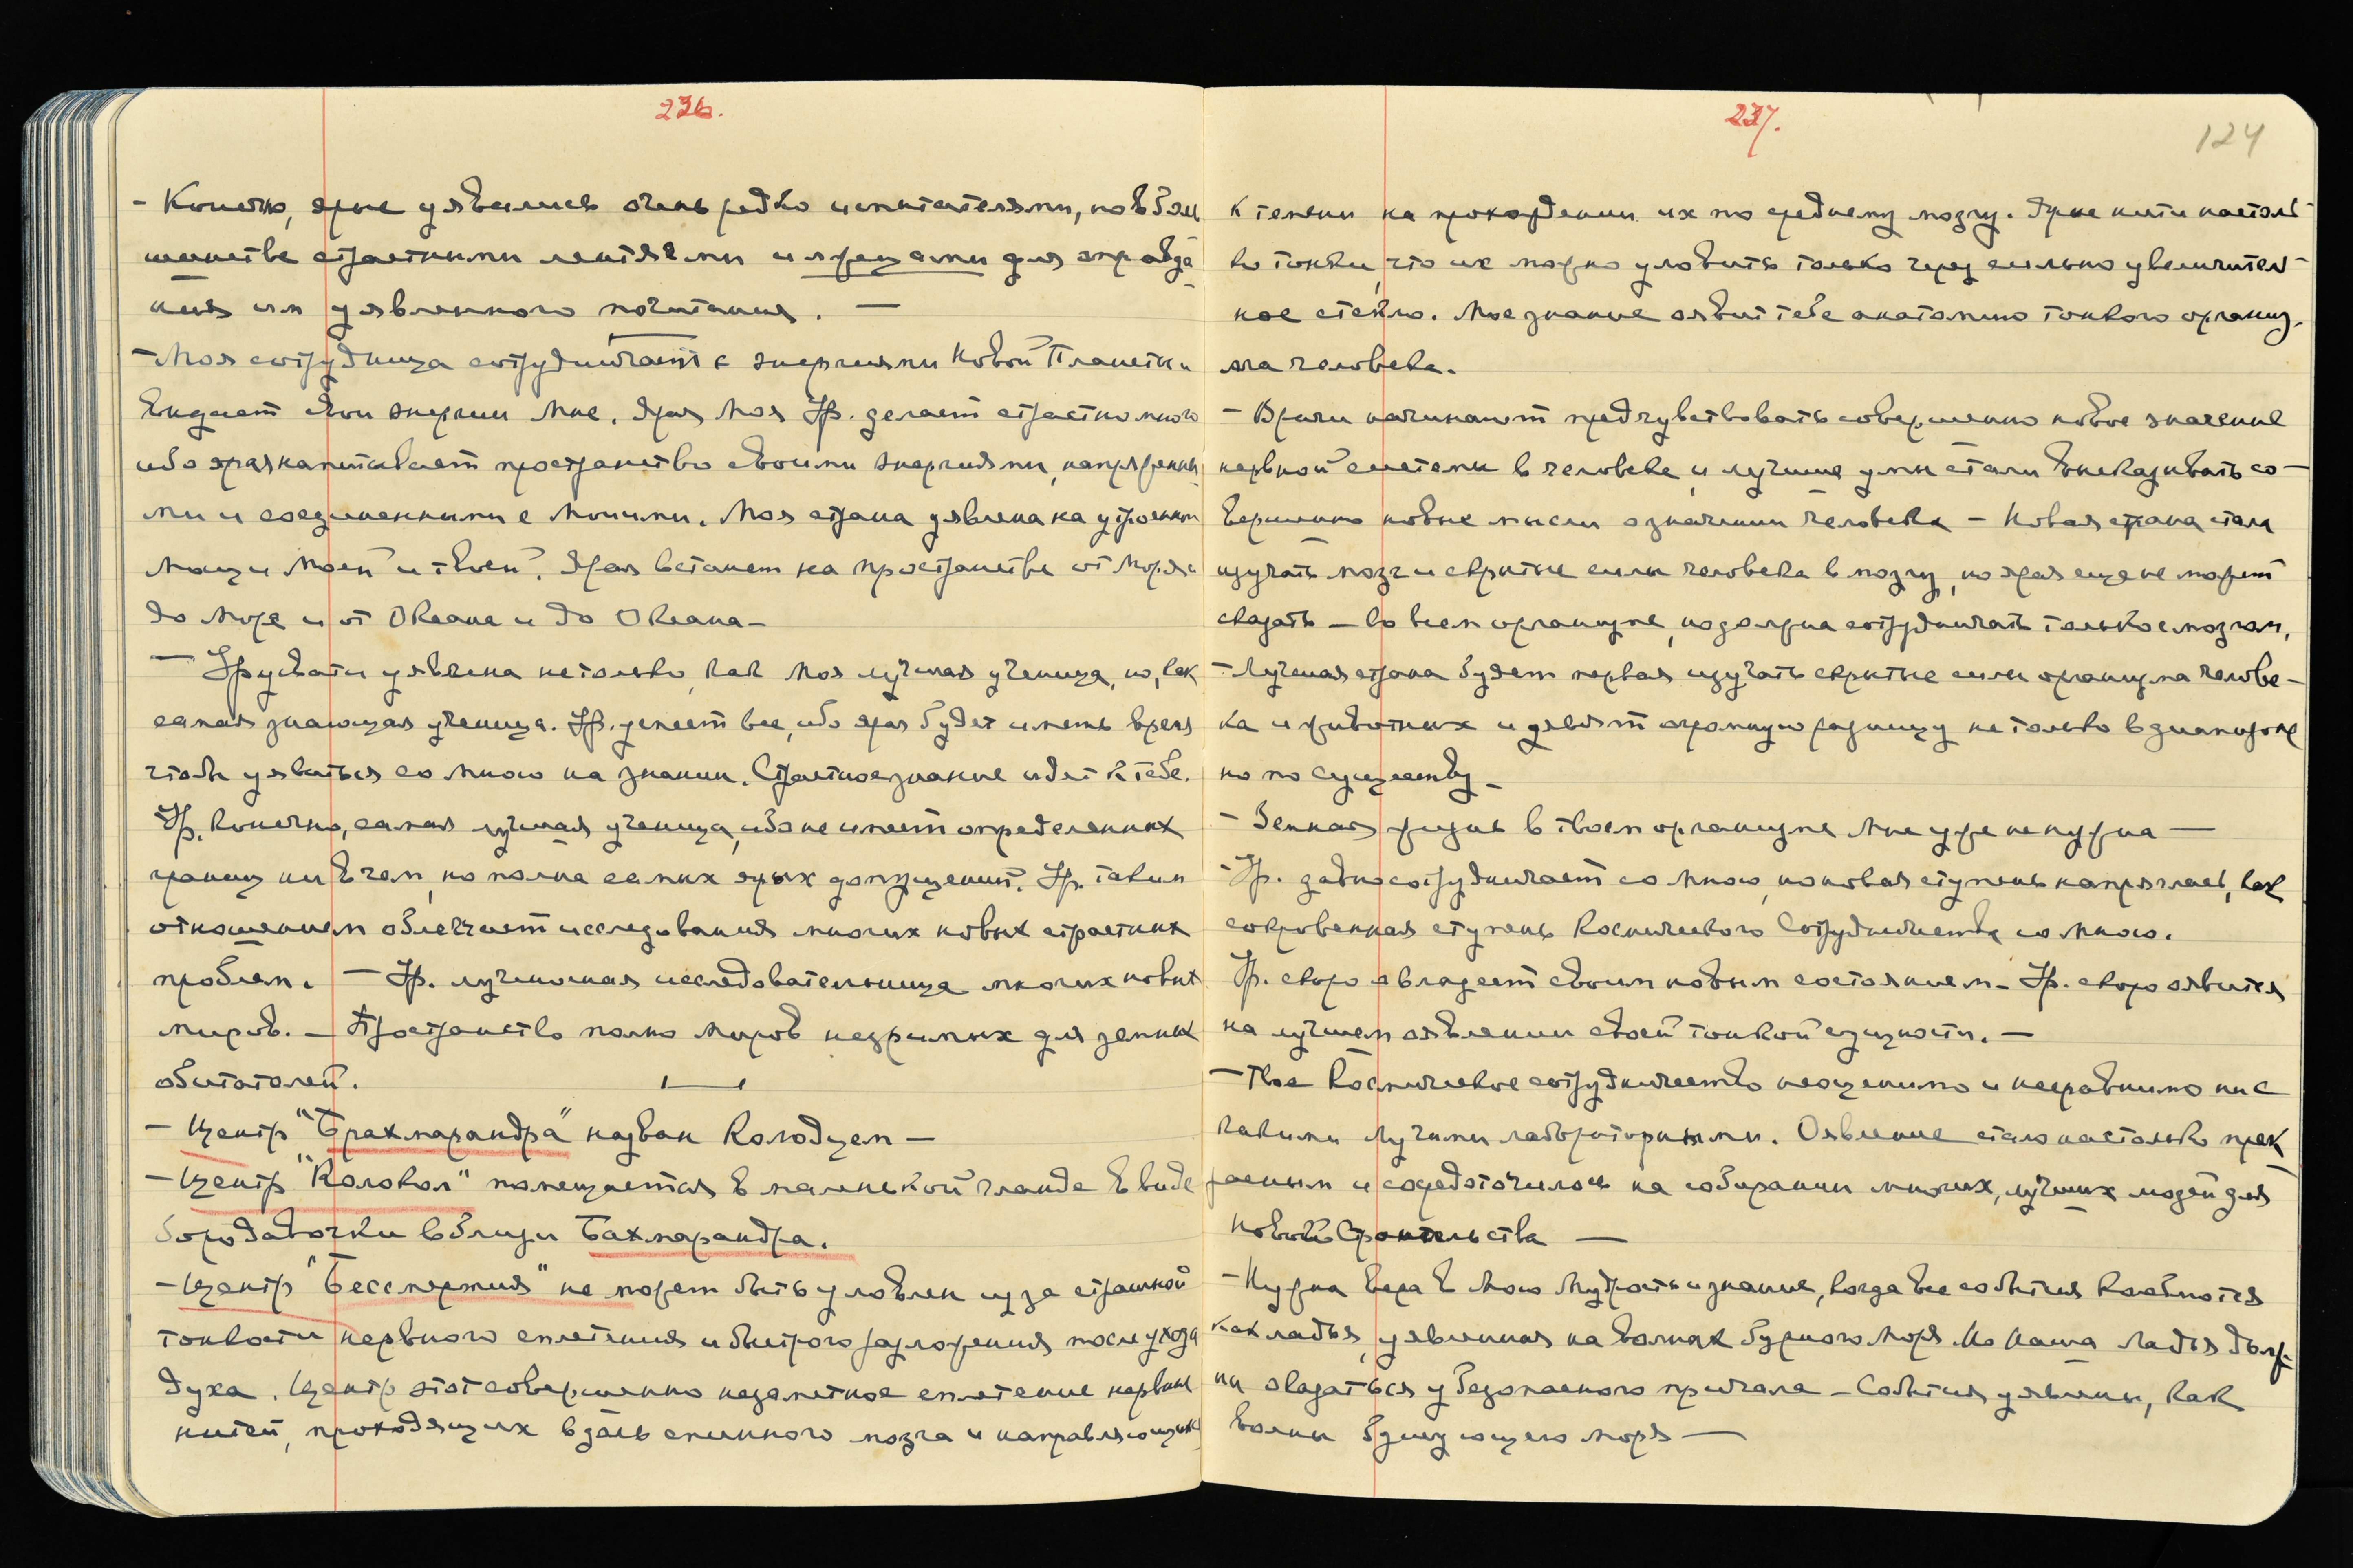 236.
- Конечно, ярые уявились очень редко испытателями, но в боль
шинстве страстными лентяями и жрецами для оправда
ния им уявленного почитания. —
- Моя сотрудница сотрудничает с энергиями Новой Планеты и
выдает свои энергии Мне. Ярая Моя Ур. делает страстно много
ибо ярая напитывает пространство своими энергиями, напряженны
ми и соединенными с Моими. Моя страна уявлена на утроении
мощи Моей и твоей. Ярая встанет на пространстве от Моря и
до Моря и от Океана и до Океана —
— Урусвати уявлена не только, как Моя лучшая ученица, но, как
самая знающая ученица. Ур. успеет все, ибо ярая будет иметь время
чтобы уявиться со Мною на знании. Страстное знание идет к тебе.
Ур. Конечно, самая лучшая ученица, ибо не имеет определенных
границ ни в чем, но полна самых ярых допущений. Ур. таким
отношением облегчает исследования многих новых страстных
проблем. — Ур. лучшая исследовательница многих новых
миров. — Пространство полно Миров незримых для земных
обитателей.
- Центр "Брахмарандра" назван Колодцем —
- Центр "Колокол" помещается в маленькой гланде в виде
бородавочки вблизи Бахмарандра.
- Центр "Бессмертия" не может быть уловлен из за страшной
тонкости нервного сплетения и быстрого разложения после ухода
духа. Центр этот совершенно незаметное сплетение нервных
нитей, проходящих вдоль спинного мозга и направляющихся
237.
124
к темени на прохождении их по среднему мозгу. Ярые нити настоль
ко тонки, что их можно уловить только через сильно увеличитель
ное стекло. Мое знание оявит тебе анатомию тонкого организ-
ма человека.
- Врачи начинают предчувствовать совершенно новое значение
нервной системы в человеке, и лучшие умы стали высказывать со-
вершенно новые мысли о значении человека — Новая страна стала
изучать мозг и скрытые силы человека в мозгу, но ярая еще не может
сказать — во всем организме, но должна сотрудничать только с мозгом,
- Лучшая страна будет первая изучать скрытые силы организма челове-
ка и животных и уявит огромную разницу не только в диапазоне
но по существу —
- Земная жизнь в твоем организме Мне уже не нужна —
- Ур. давно сотрудничает со Мною, но новая ступень напряглась, как
сокровенная ступень Космического Сотрудничества со Мною.
Ур. скоро овладеет своим новым состоянием — Ур. скоро оявится
на лучшем оявлении своей тонкой сущности. —
- Твое Космическое сотрудничество неоценимо и несравнимо ни с
какими Лучами лабораторными. Оявление стало настолько прек
расным и сосредоточилось на собирании многих, лучших людей для
Нового Строительства —
- Нужна вера в Мою Мудрость и знание, когда все события колеблются
как ладья, уявленная на волнах бурного моря. Но Наша Ладья долж-
на оказаться у безопасного причала — События уявлены, как
волны бушующего моря —